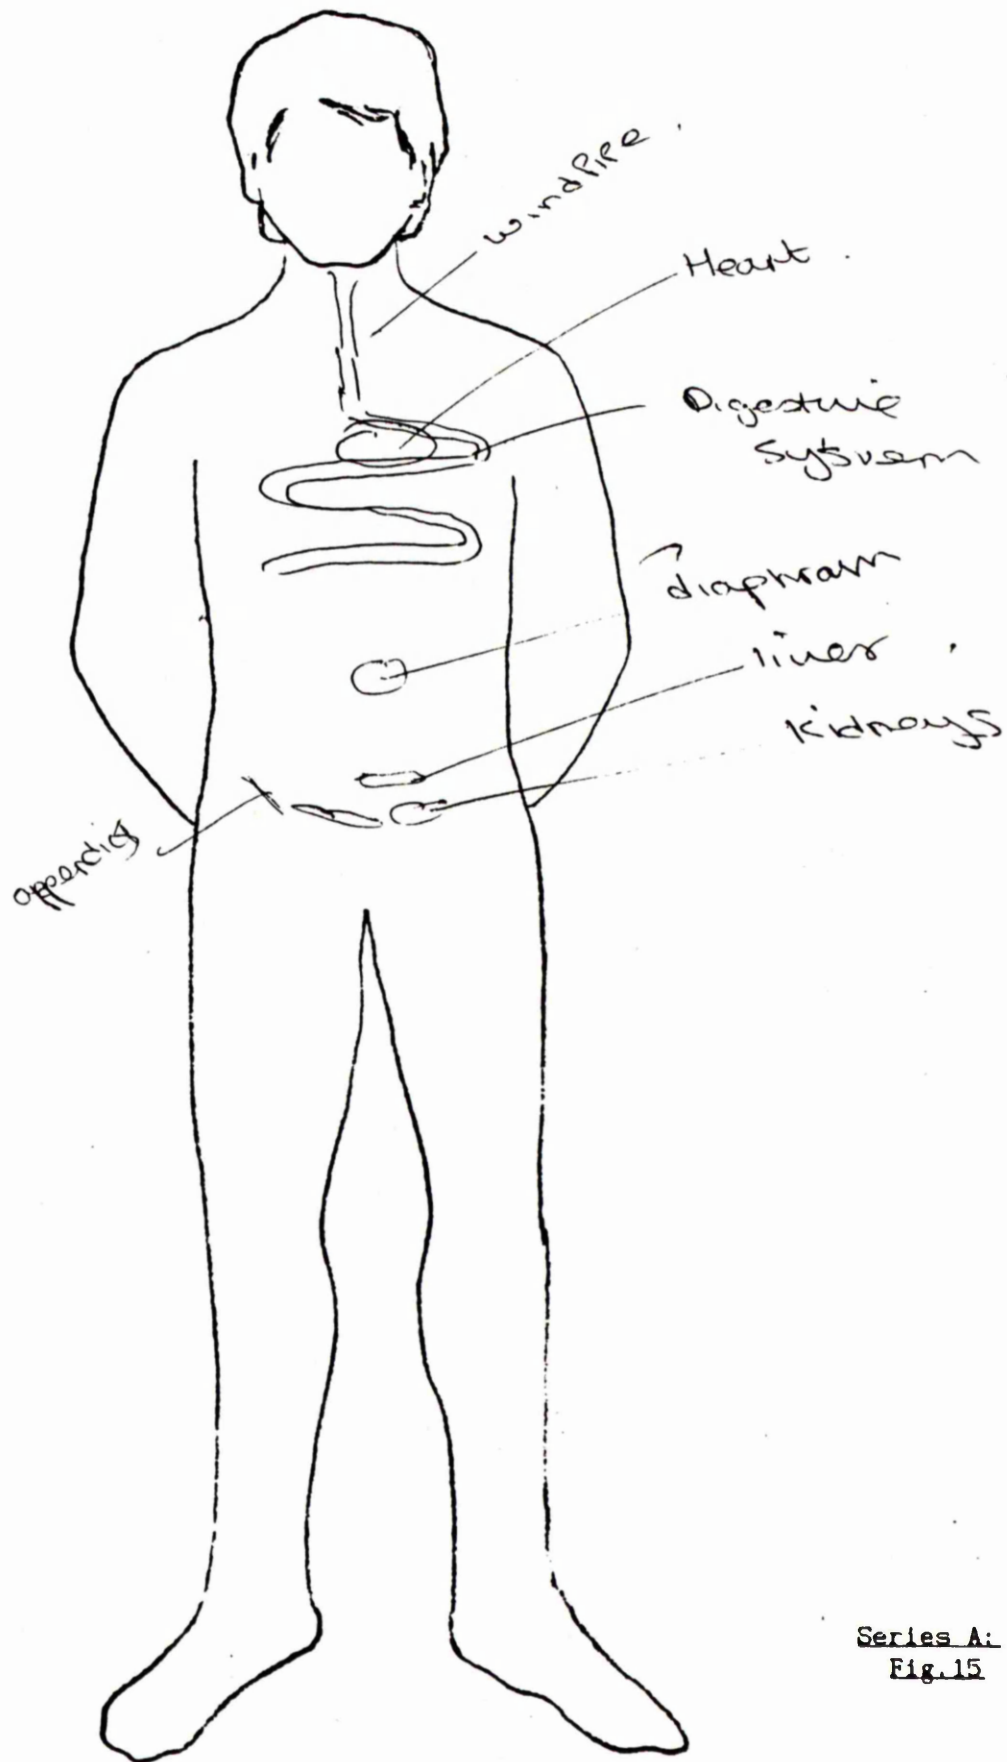 windpipe.
Heart.
Digestive
System
diaphram
liver.
kidneys
appendix
Series A:
Fig.15